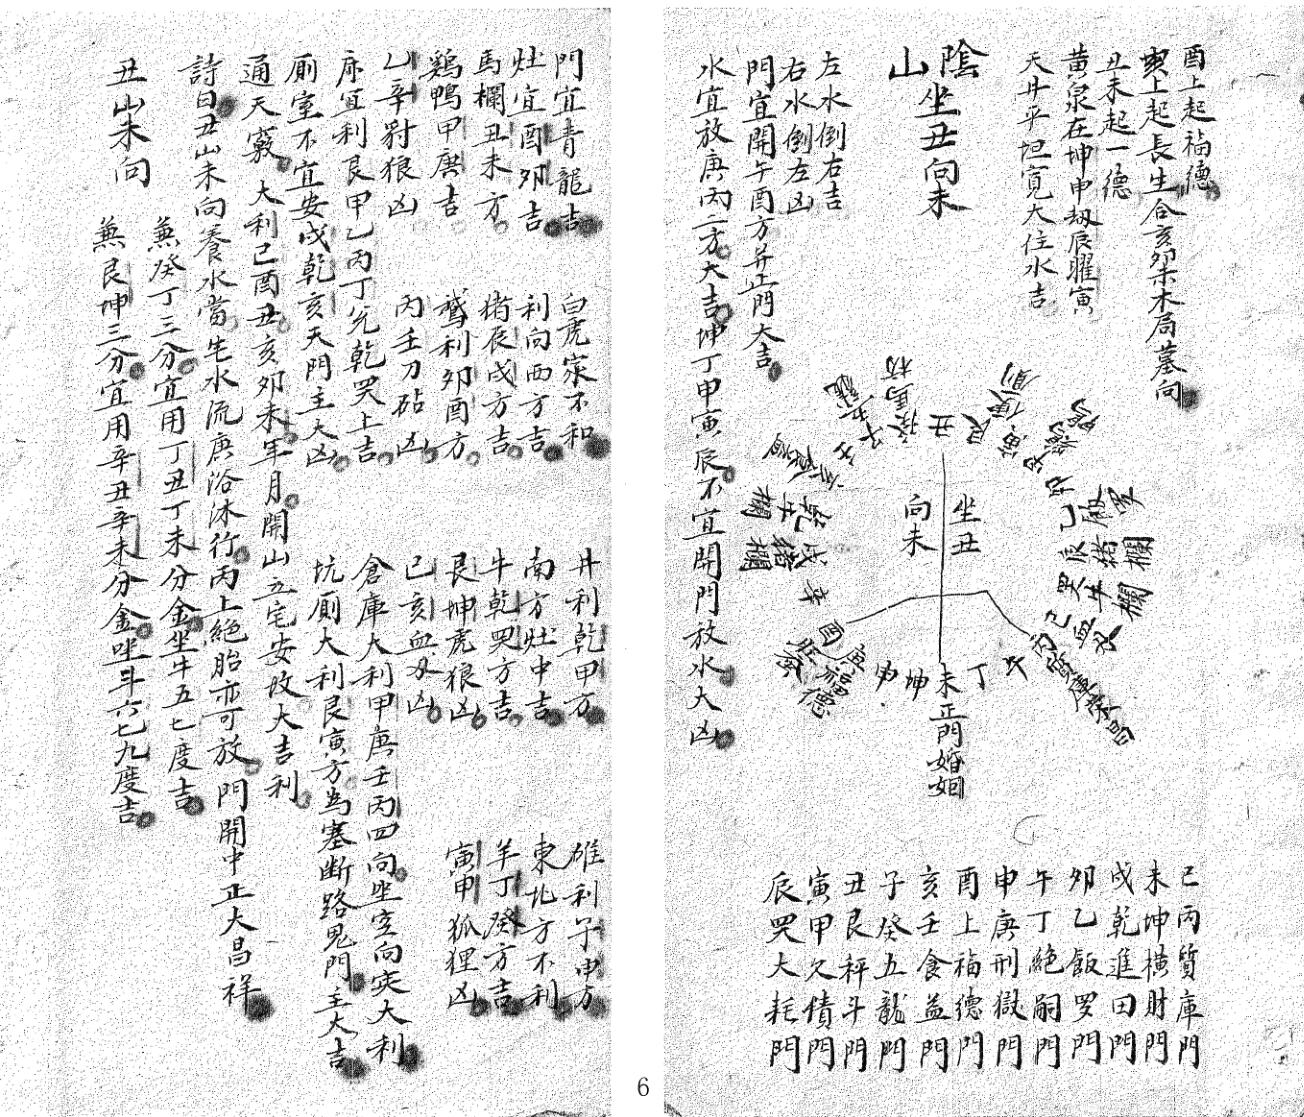 酉上起福德
亥上起長生合亥卯未木局墓向
丑未起一德
黃泉在坤申劫辰曜寅
天井平坦寬大住水吉
陰山 坐丑向未
左水倒右吉
右水倒左凶
門宜開午酉方并正門大吉
水宜放庚丙二方大吉坤丁甲寅辰不宜開門放水大凶
丑
艮
坐丑
向未
未正門婚姻
丁
坤
申
庚福德
酉
辛
戌豬欄
乾牛欄
辰豬欄
卯
巳丙質庫門
未坤橫財門
戌乾進田門
卯乙飯罗門
午丁絕嗣門
申庚刑獄門
酉上福德門
亥壬食益門
子癸五龍門
丑艮秤斗門
寅甲欠債門
辰哭大耗門
6
門宜青龍吉 白虎家不和 井利乾甲方 碓利子申方
灶宜酉卯吉 利向西方吉 南方灶中吉 東北方不利
馬欄丑未方 豬辰戌方吉 牛乾哭方吉 羊丁癸方吉
鷄鴨甲庚吉 鵞利卯酉方 艮坤虎狼凶 寅甲狐狸凶
乙辛豺狼凶 丙壬刀砧凶 巳亥血刃凶
床宜利艮甲乙丙丁兌乾哭上吉 倉庫大利甲庚壬丙四向坐空向实大利
廁室不宜安戌乾亥天門主大凶 坑廁大利艮寅方為塞断路鬼門主大吉
通天竅 大利己酉丑亥卯未年月開山立宅安坟大吉利
詩曰丑山未向養水當先水流庚浴沐行丙上絕胎亦可放門開中正大昌祥
丑山未向
兼癸丁三分宜用丁丑丁未分金坐牛五七度吉
兼艮坤三分宜用辛丑辛未分金坐斗六七九度吉